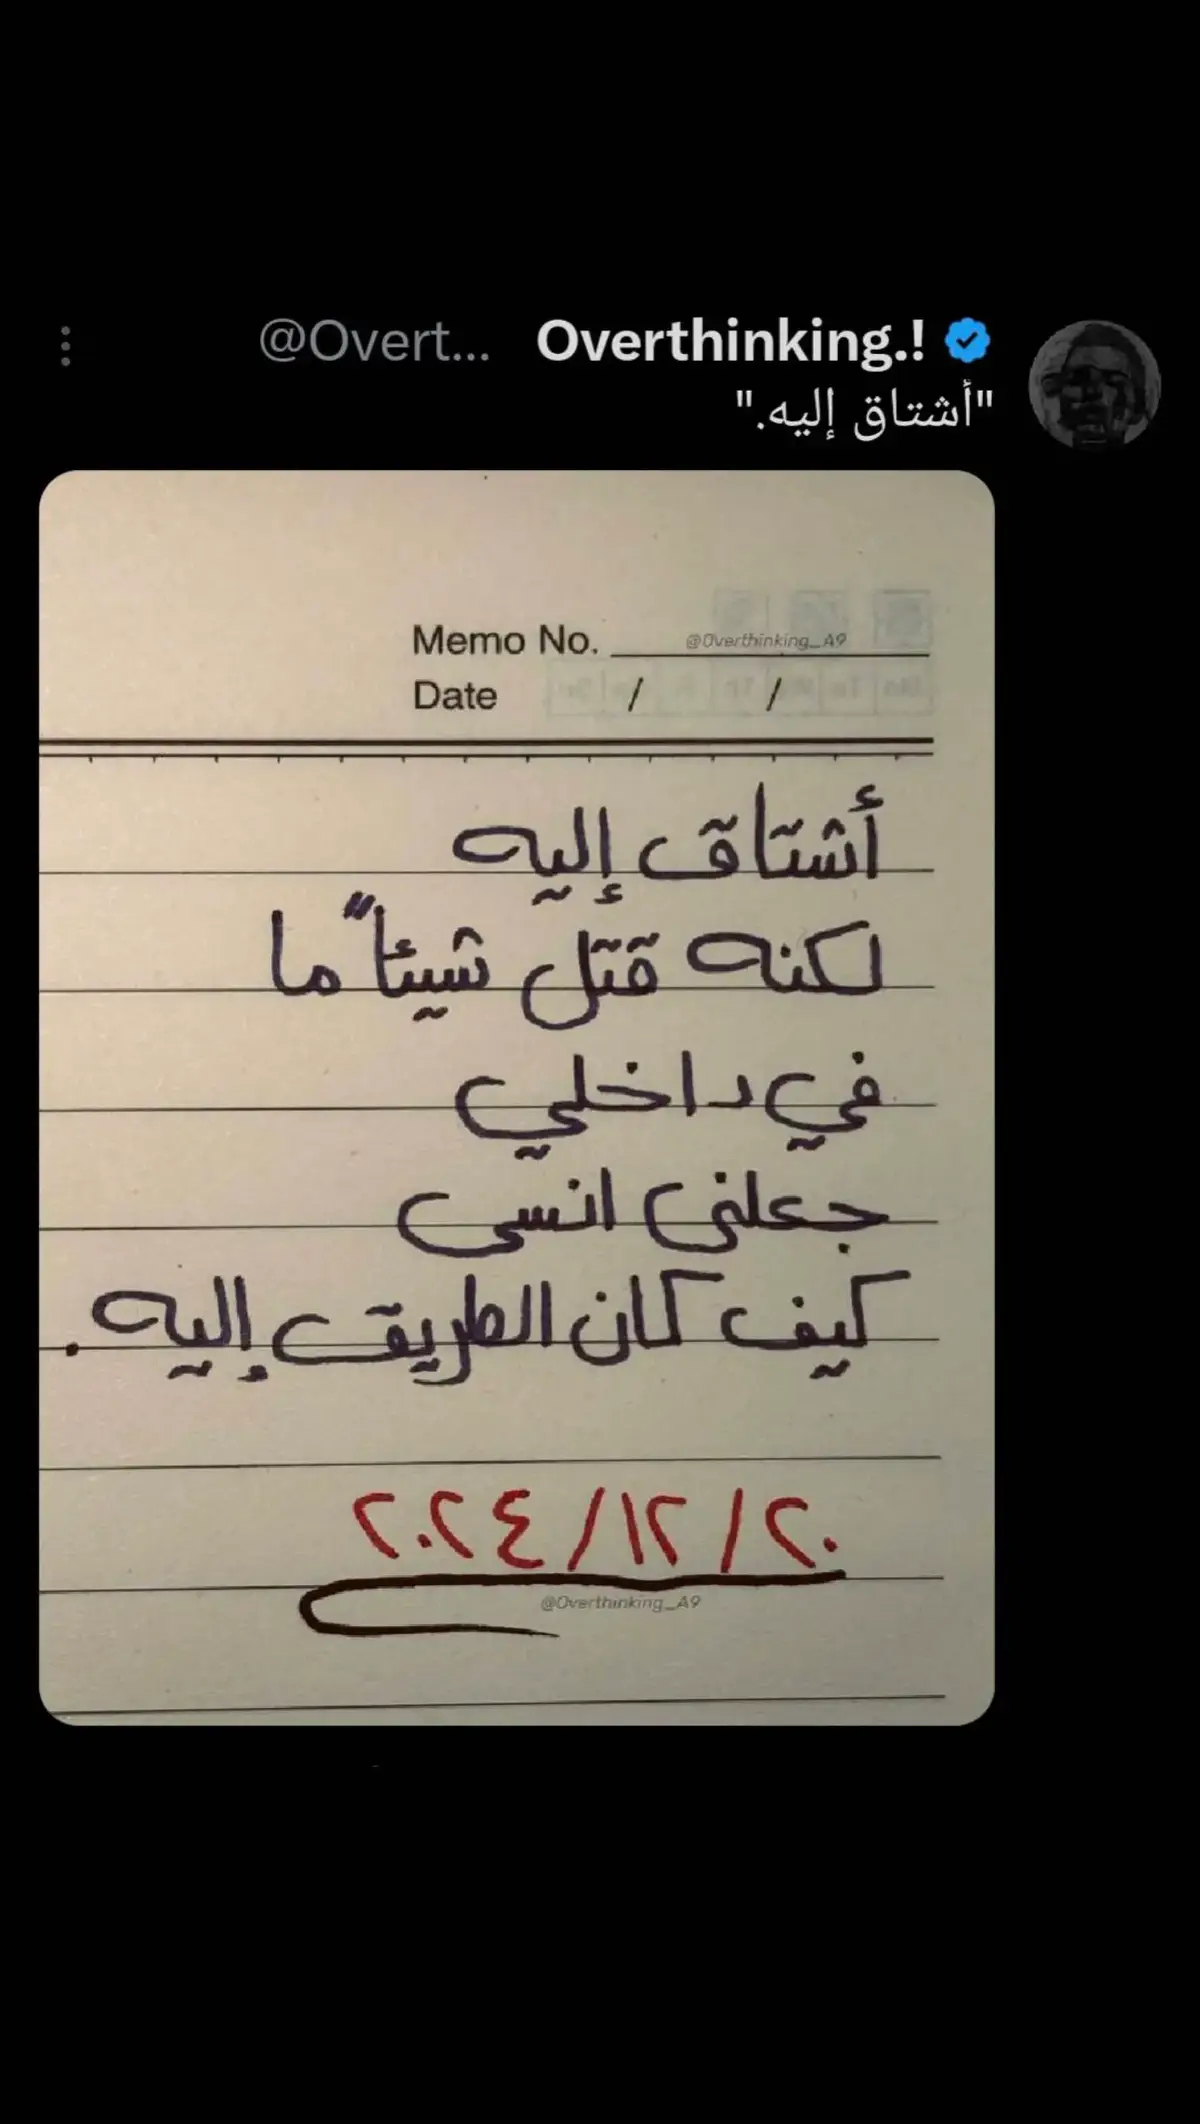 Overthinking.! @Overt...
"أشتاق إليه."
Memo No. @Overthinking_A9
Date / /
أشتاق إليه
لكنه قتل شيئاً ما
في داخلي
جعلني انسى
كيف كان الطريق إليه.
٢٠/١٢/٢٠٢٤
@Overthinking_A9